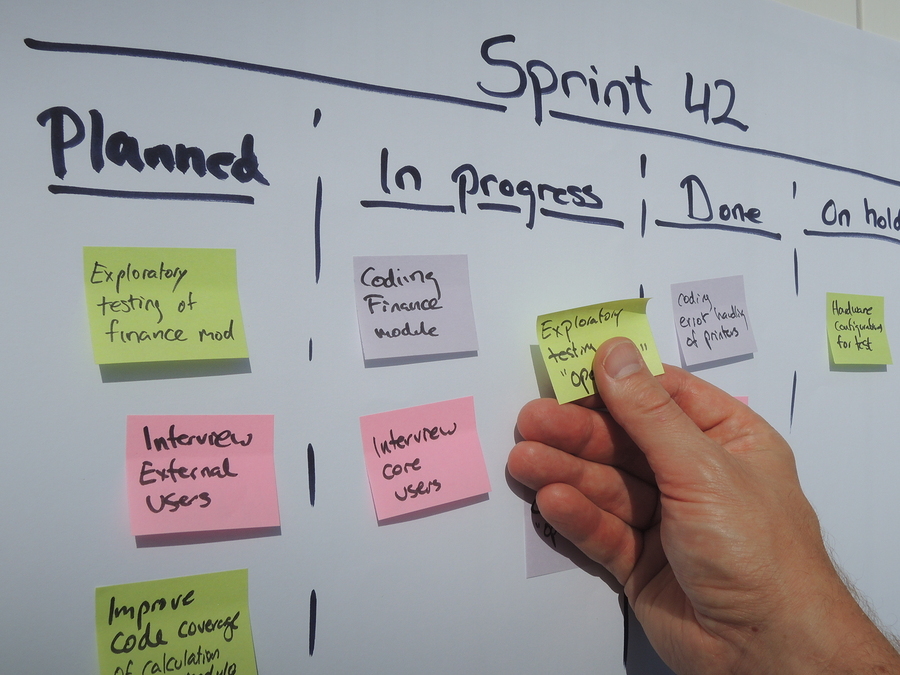 Sprint 42
Planned
In progress
Done
On hold
Exploratory
testing of
finance mod
Interview
External
users
Improve
code coverage
of calculation
Codiing
Finance
module
Interview
core
users
Exploratory
testing
coding
error handling
of printers
Hardware
Configurations
for test